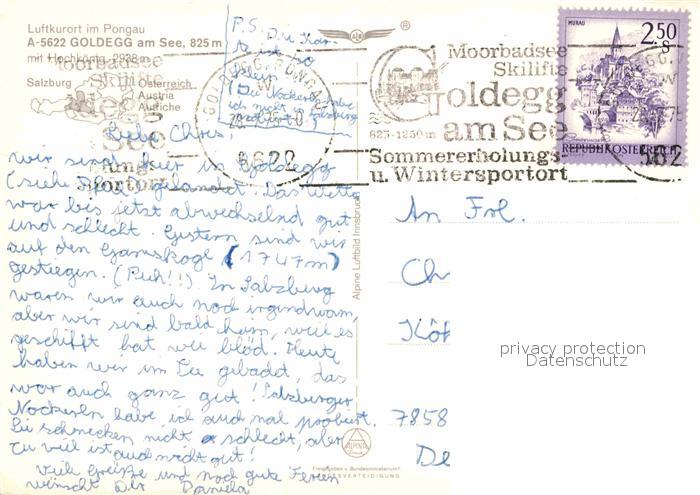 Luftkurort im Pongau
A-5622 GOLDEGG am See, 825 m
mit Hochkönig, 2938 m
Salzburg
Österreich
Austria
Autriche
P.S. Die Kar-
te ist so
klein
ich nicht in Salzburg
Liebe Chris,
wir sind hier in Goldegg
(siehe gelandet. Das Wetter
war bis jetzt abwechselnd gut
und schlecht. Gestern sind wir
auf den Gamskogl (1747m)
gestiegen. (Puh!!). In Salzburg
waren wir auch noch irgendwann,
aber wir sind bald heim, weil es
geschifft hat wie blöd. Heute
haben wir im See gebadet, das
war auch ganz gut! Salzburger
Nockerln habe ich auch mal probiert.
Sie schmecken nicht schlecht, aber
zu viel ist auch nicht gut!
Viele Grüße und noch gute Ferien
wünscht Dir Daniela
Alpine Luftbild Innsbruck
ALPINE
Moorbadsee
Skilifte
Goldegg
825-1250 m
am See
Sommererholungs-
u. Wintersportort
5622
MURAU
2.50
S
REPUBLIK ÖSTERREICH
An Frl.
Ch
Köt
7858
De
privacy protection
Datenschutz